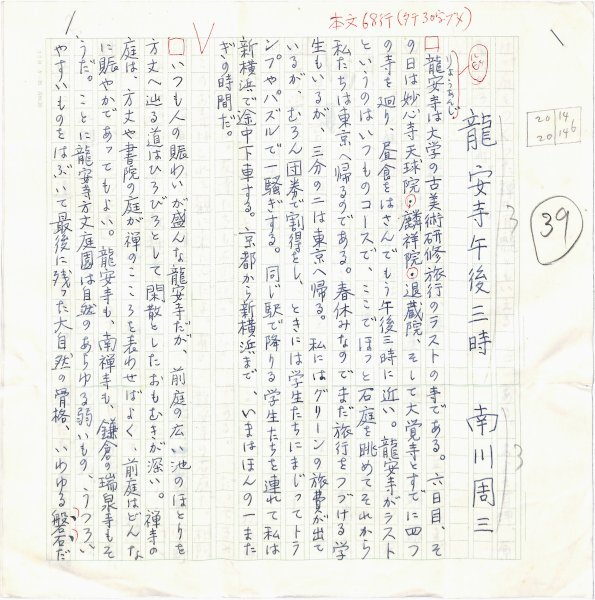 本文68行(タテ30字ヅメ)
1
20 14
20 146
39
3
3
龍安寺午後三時　南川周三
りょうあんじ
□龍安寺は大学の古美術研修旅行のラストの寺である。六日目、そ
の日は妙心寺天球院・麟祥院・退蔵院、そして大覚寺とすでに四つ
の寺を廻り、昼食をはさんでもう午後三時に近い。龍安寺がラスト
というのはいつものコースで、ここでほっと石庭を眺めてそれから
私たちは東京へ帰るのである。春休みなのでまだ旅行をつづける学
生もいるが、三分の二は東京へ帰る。私にはグリーンの旅費が出て
いるが、むろん団券で割得をし、ときには学生たちにまじってトラ
ンプやパズルで一騒ぎする。同じ駅で降りる学生たちを連れて私は
新横浜で途中下車する。京都から新横浜まで、いまはほんの一また
ぎの時間だ。
□いつも人の賑わいが盛んな龍安寺だが、前庭の広い池のほとりを
方丈へ辿る道はひろびろとして閑散としたおもむきが深い。禅寺の
庭は、方丈や書院の庭が禅のこころを表わせばよく、前庭はどんな
に賑やかであってもよい。龍安寺も、南禅寺も、鎌倉の瑞泉寺もそ
うだ。ことに龍安寺方丈庭園は自然のあらゆる弱いもの、うつろい
やすいものをはぶいて最後に残った大自然の骨格、いわゆる盤石だ
1